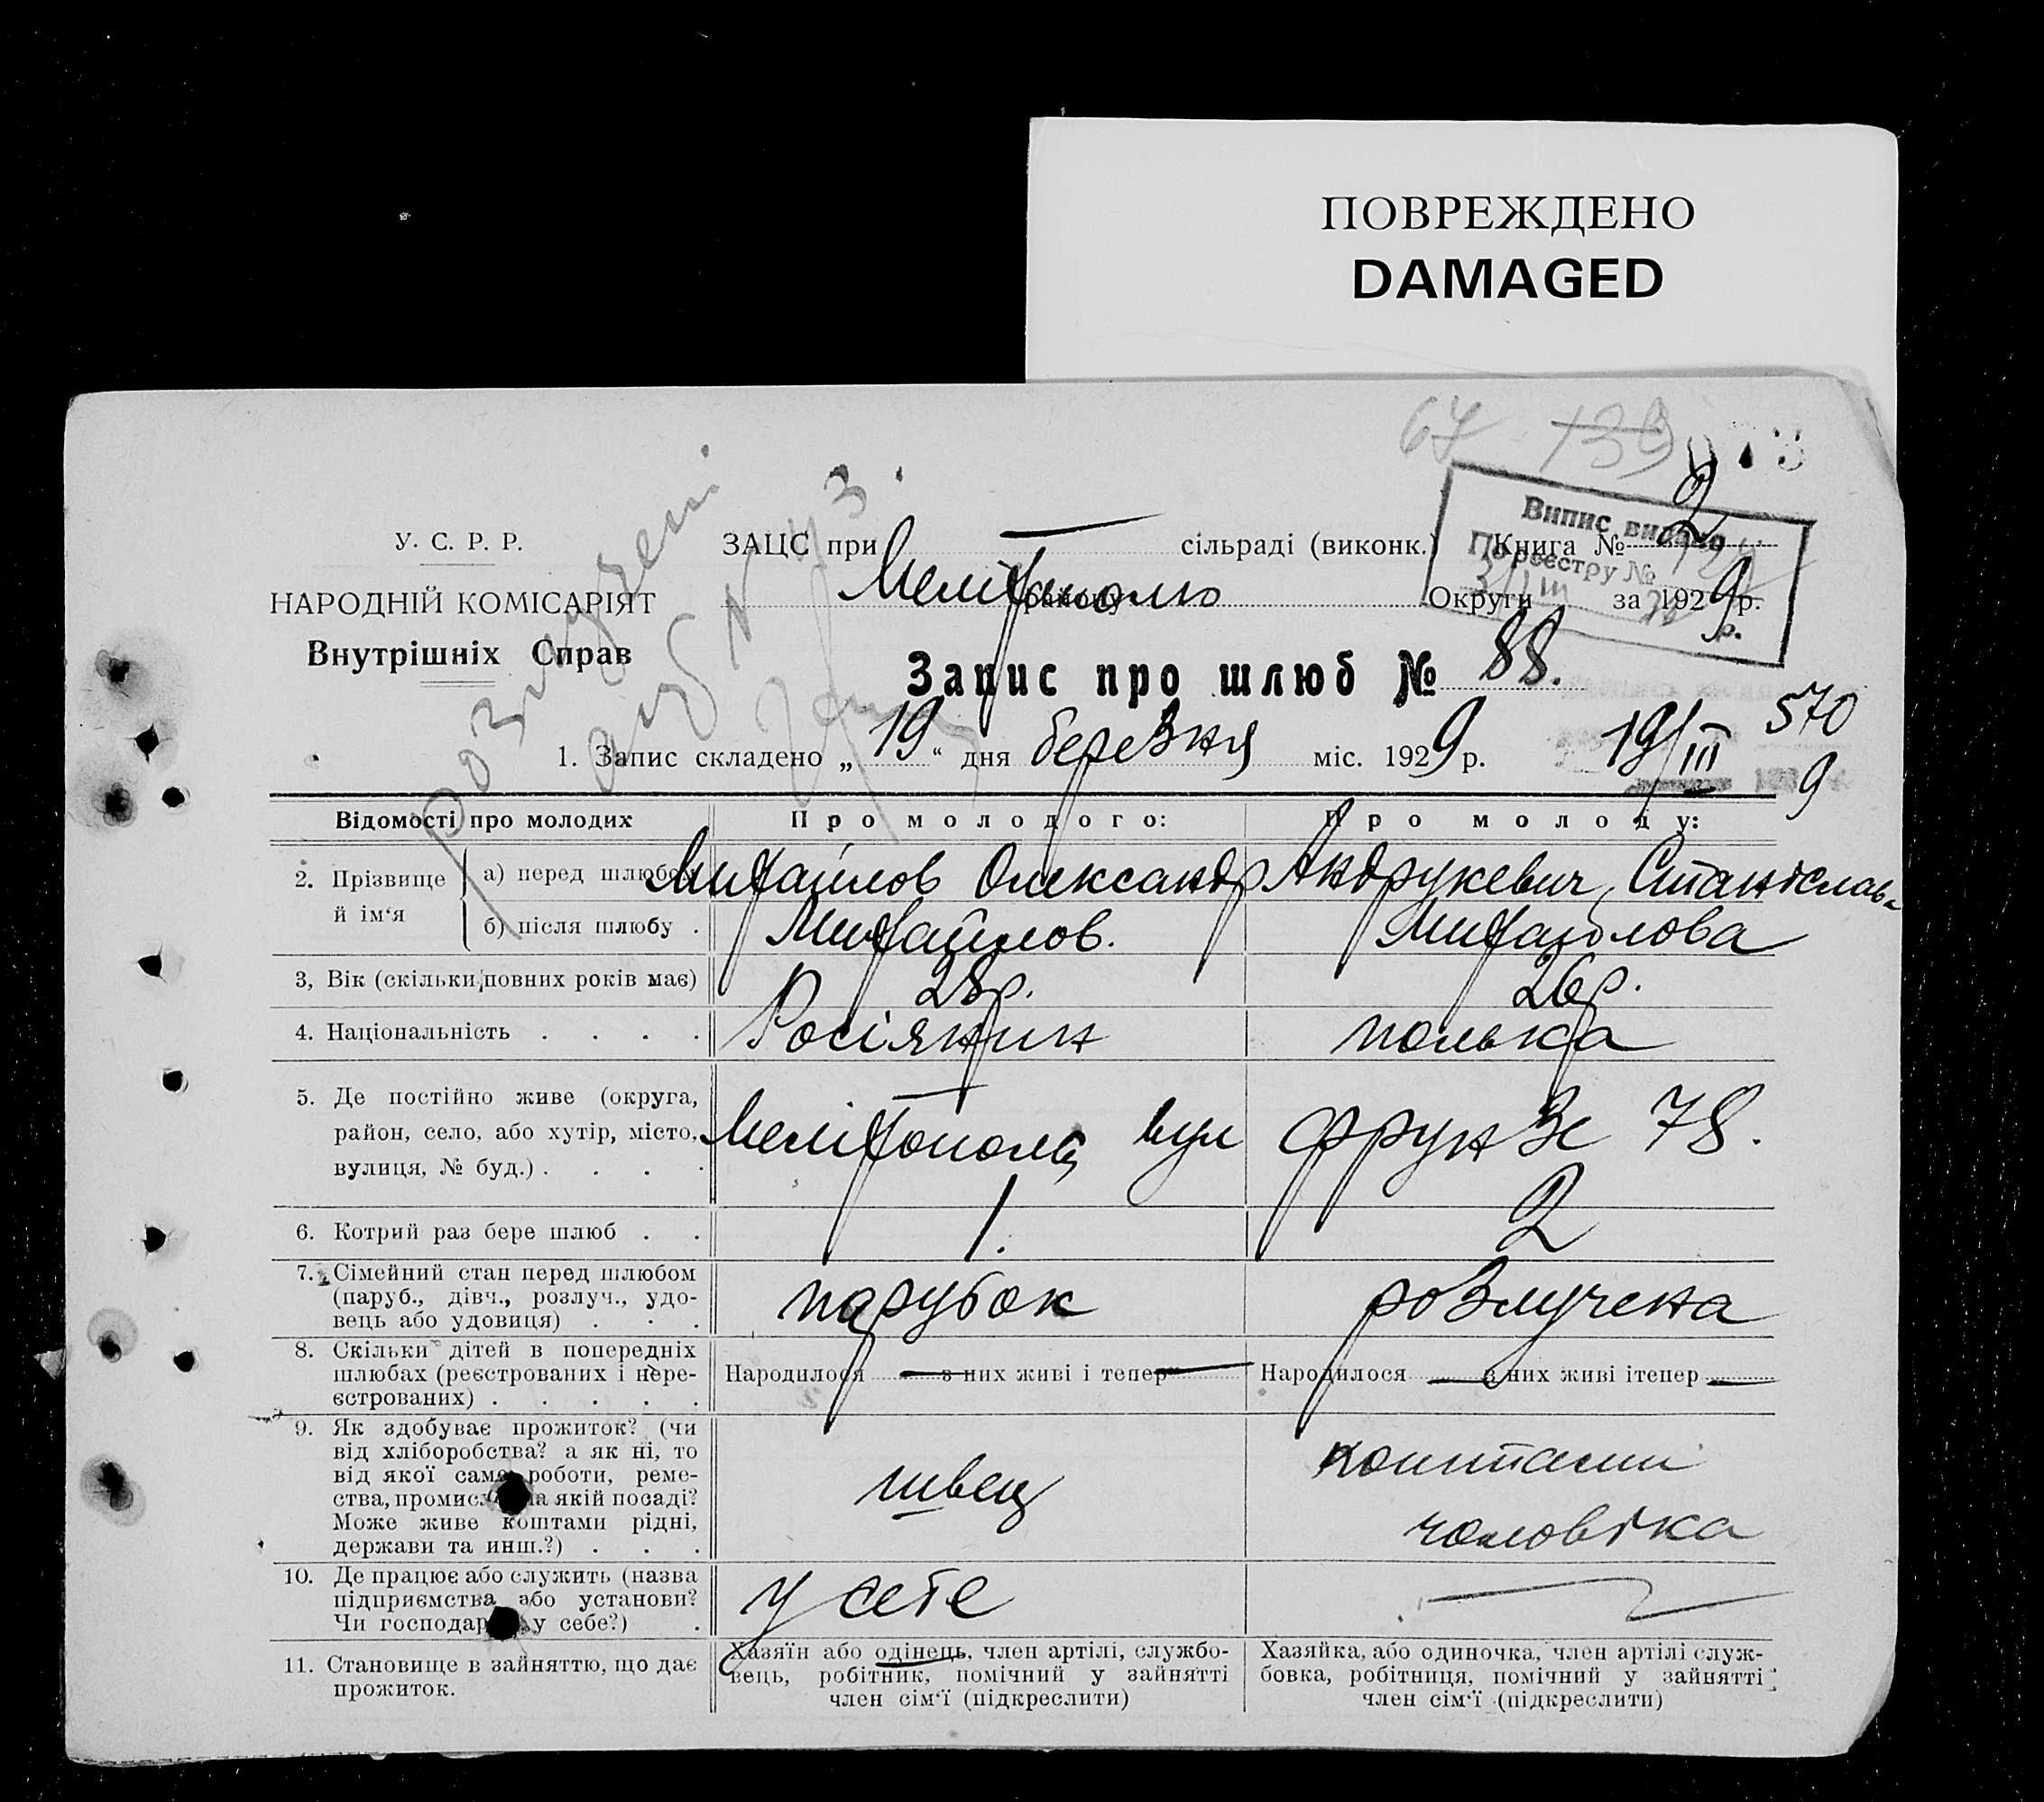 ПОВРЕЖДЕНО
DAMAGED
67 139
У. С. Р. Р.
НАРОДНІЙ КОМІСАРІЯТ
Внутрішніх Справ
розлучені
акт N 43.
ЗАЦС при сільраді (виконк.) Книга № 2
Мелітополю району Округи за 1929 р.
Випис видано
По реєстру №
р.
Запис про шлюб № 88.
1. Запис складено „19“ дня березня міс. 1929 р. 19/III 9 570
Відомості про молодих Про молодого: Про молоду:
2. Прізвище й ім‘я а) перед шлюбом Михайлов Олександр Андрукевич, Станіслава
б) після шлюбу . Михайлов. Михайлова
3, Вік (скільки повних років має) 28р. 26р.
4. Національність . . . . Росіянин полька
5. Де постійно живе (округа,
район, село, або хутір, місто, Мелітополь вул Фрунзе 78.
вулиця, № буд.) . . . .
6. Котрий раз бере шлюб . . 1. 2
7. Сімейний стан перед шлюбом
(паруб., дівч., розлуч., удо- парубок розлучена
вець або удовиця) . . .
8. Скільки дітей в попередніх
шлюбах (реєстрованих і нере- Народилося — з них живі і тепер — Народилося — з них живі ітепер —
єстрованих) . . . . .
9. Як здобуває прожиток? (чи
від хліборобства? а як ні, то
від якої само роботи, реме- коштами
ства, промис на якій посаді? швец
Може живе коштами рідні, чоловіка
держави та инш.?) . . .
10. Де працює або служить (назва
підприємства або установи? у себе —
Чи господар у себе?) .
11. Становище в зайняттю, що дає
прожиток.
Хазяїн або одінець, член артілі, службо-
вець, робітник, помічний у зайнятті
член сім‘ї (підкреслити)
Хазяйка, або одиночка, член артілі служ-
бовка, робітниця, помічний у зайнятті
член сім‘ї (підкреслити)